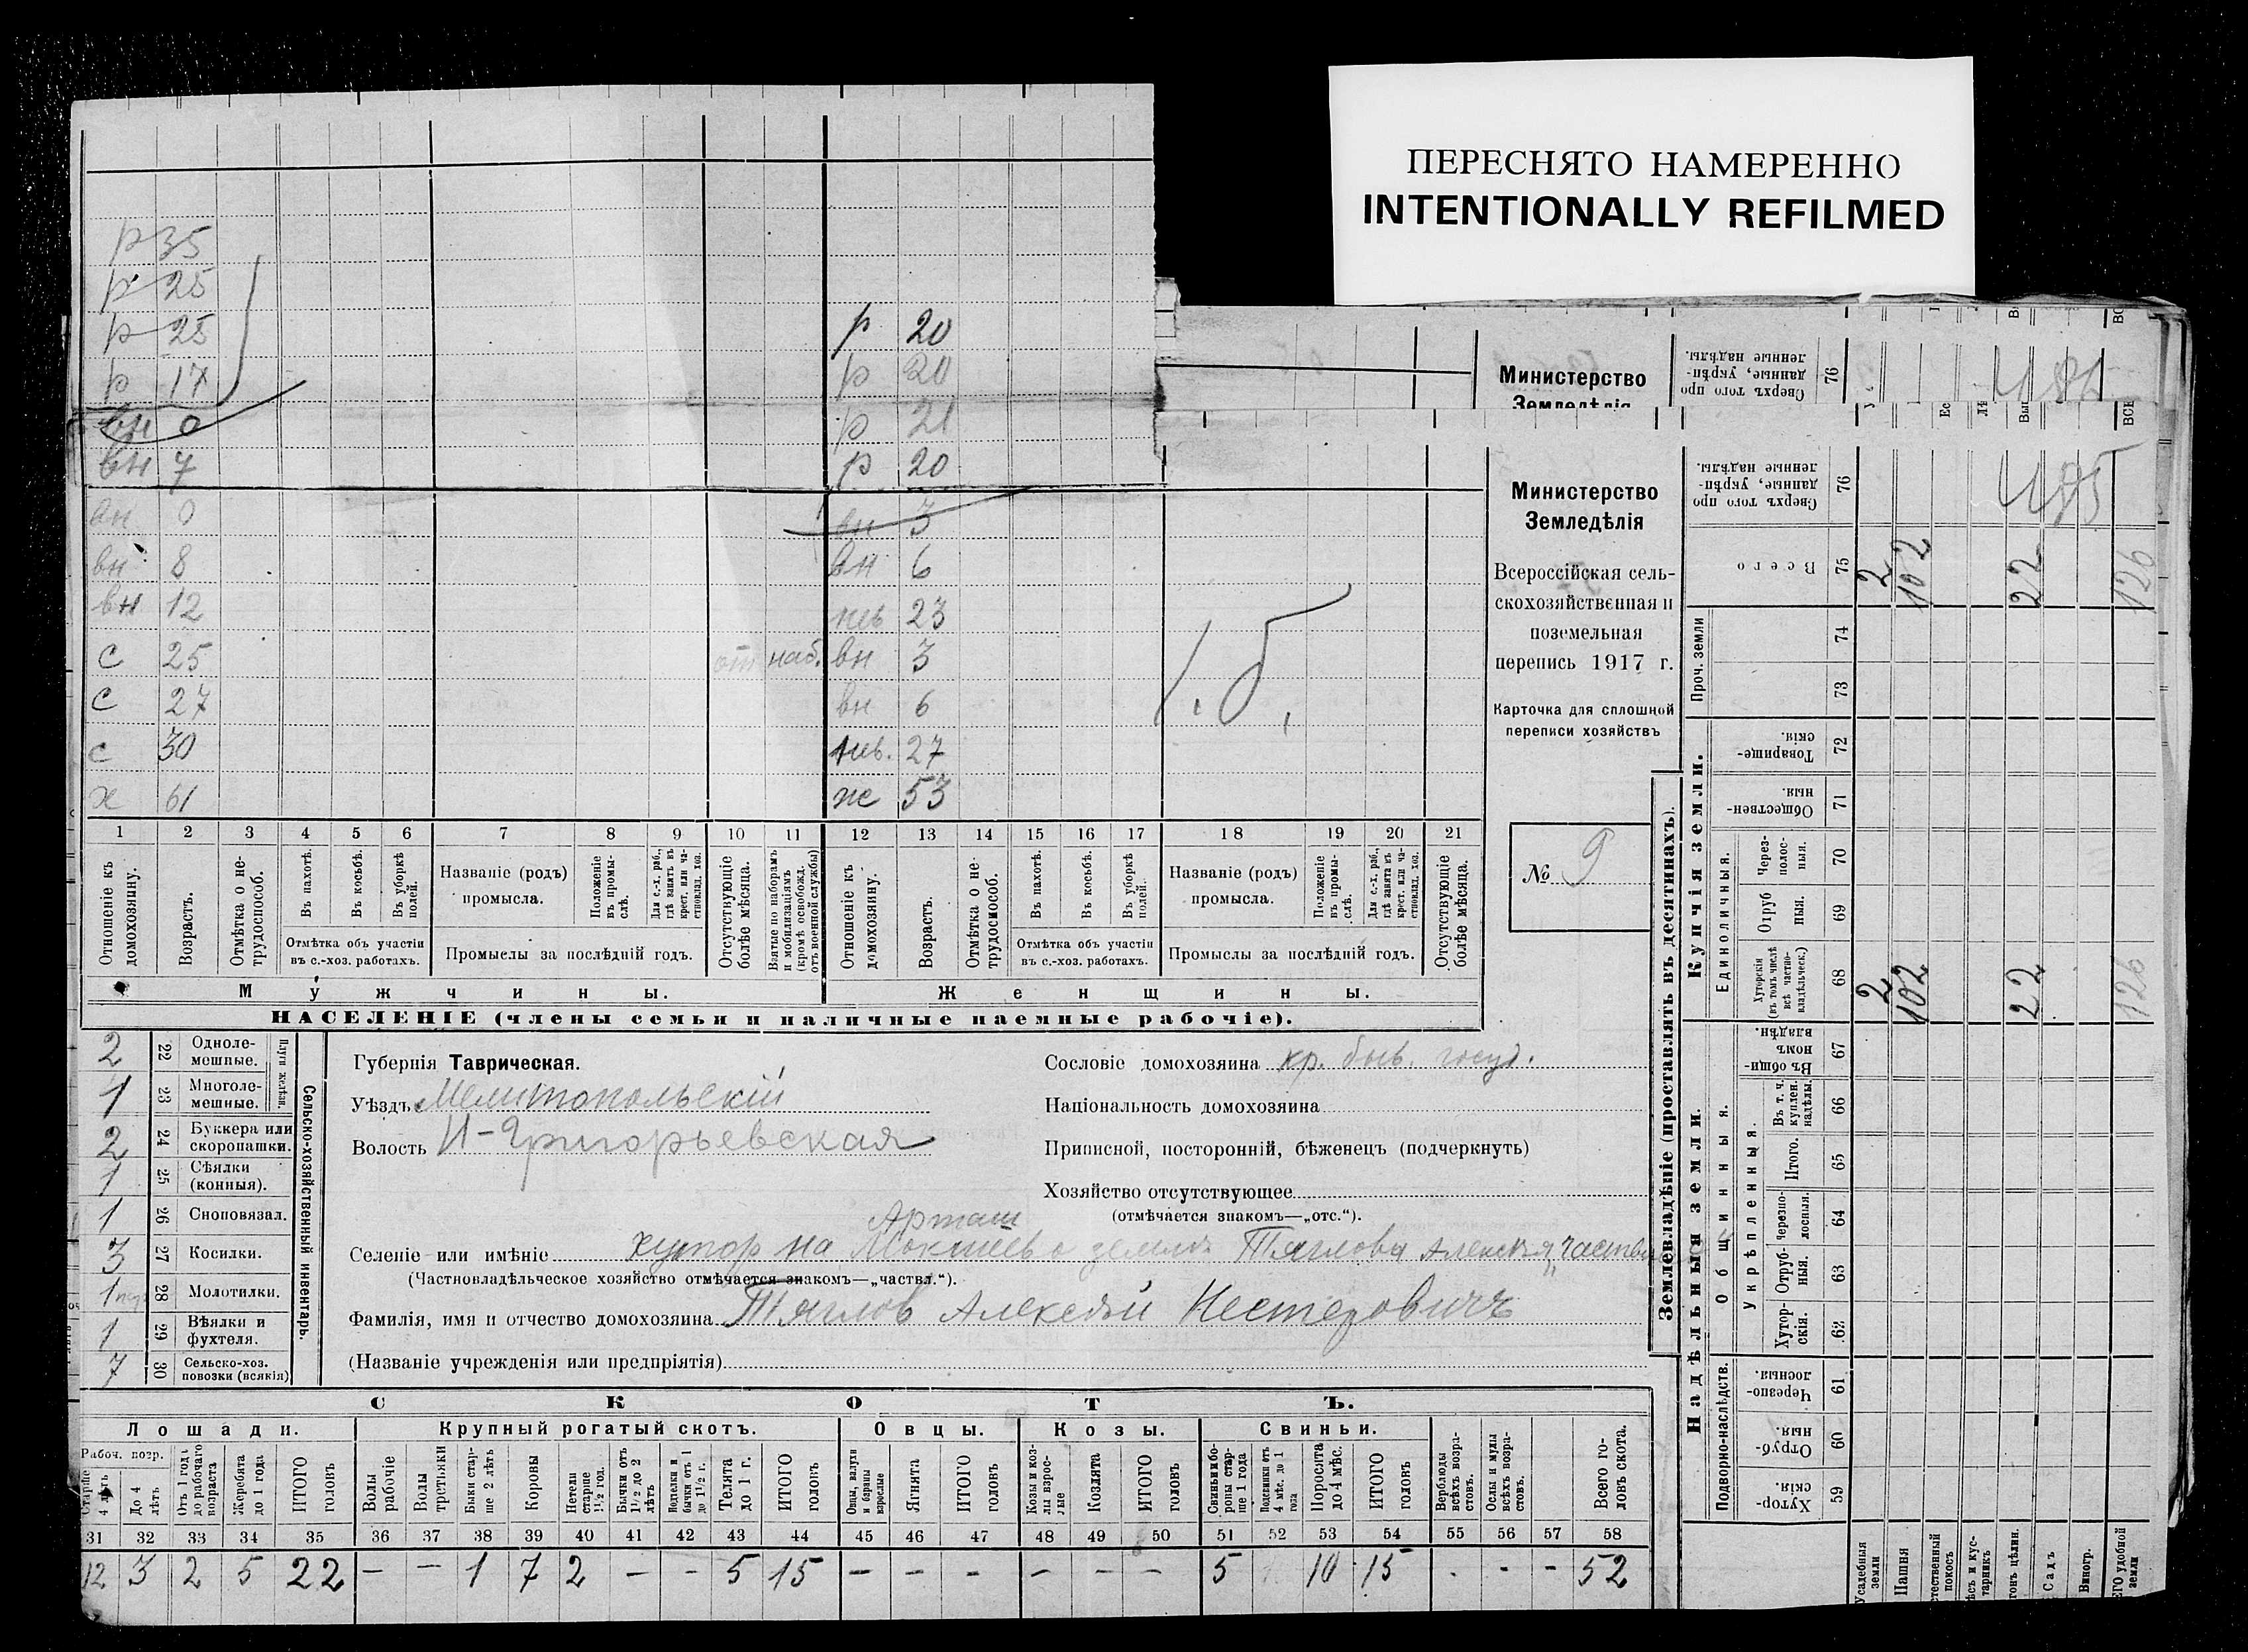 ПЕРЕСНЯТО НАМЕРЕННО
INTENTIONALLY REFILMED
Министерство
Земледѣлія
Сверхъ того про
данные, укрѣп-
ленные надѣлы.
76
р 35
р 25
р 25
р 17
вн 0
вн 7
вн 0
вн 8
вн 12
с 25 наб.
с 27
с 30
х 61
р 20
р 20
р 21
р 20
вн 3
вн 6
нев 23
вн 3
вн 6
нев. 27
ж 53
1 2 3 4 5 6 7 8 9 10 11 12 13 14 15 16 17 18 19 20 21
Отношеніе къ домохозяину.
Возрастъ.
Отмѣтка о не-трудоспособ.
Въ пахотѣ.
Въ косьбѣ.
Въ уборкѣ полей.
Отмѣтка объ участіи
въ с.-хоз. работахъ.
Названіе (родъ)
промысла.
Положеніе въ промы-слѣ.
Для с.-х. раб., гдѣ занятъ въ крест. или ча-стновлад. хоз.
Промыслы за послѣдній годъ.
Отсутствующіе болѣе мѣсяца.
Взятые по наборамъ и мобилизаціямъ (кромѣ освобожд. отъ военной службы)
Отношеніе къ домохозяину.
Возрастъ.
Отмѣтка о не-трудоспособ.
Въ пахотѣ.
Въ косьбѣ.
Въ уборкѣ полей.
Отмѣтка объ участіи
въ с.-хоз. работахъ.
Названіе (родъ)
промысла.
Положеніе въ промы-слѣ.
Для с.-х. раб., гдѣ занята въ крест. или ча-стновлад. хоз.
Промыслы за послѣдній годъ.
Отсутствующіе болѣе мѣсяца.
Мужчины.
Женщины.
НАСЕЛЕНІЕ (члены семьи и наличные наемные рабочіе).
Министерство
Земледѣлія
Всероссійская сель-
скохозяйственная и
поземельная
перепись 1917 г.
Карточка для сплошной
переписи хозяйствъ
№ 9
2 22 Одноле-мешные.
1 23 Многоле-мешные.
Плуги желѣзн.
2 24 Буккера или скоропашки.
1 25 Сѣялки (конныя).
1 26 Сноповязал.
3 27 Косилки.
1 28 Молотилки.
1 29 Вѣялки и фухтеля.
7 30 Сельско-хоз. повозки (всякія)
Сельско-хозяйственный инвентарь.
Губернія Таврическая.
Уѣздъ Мелитопольскій
Волость Н-Григорьевская
Арташ
Селеніе или имѣніе хутор на земле Тяглова Алексѣя „частвл
(Частновладѣльческое хозяйство отмѣчается знакомъ—„частвл.“).
Фамилія, имя и отчество домохозяина Тяглов Алексѣй Нестеровичъ
(Названіе учрежденія или предпріятія)
Сословіе домохозяина кр. быв. госуд.
Національность домохозяина
Приписной, посторонній, бѣженецъ (подчеркнуть)
Хозяйство отсутствующее
(отмѣчается знакомъ—„отс.“).
СКОТЪ.
Лошади. Крупный рогатый скотъ. Овцы. Козы. Свиньи.
Рабоч. возр.
Старше 4 лѣтъ
До 4 лѣтъ
Отъ 1 года до рабочаго возраста
Жеребята до 1 года
ИТОГО головъ
Волы рабочіе
Волы третьяки
Быки стар-ше 2 лѣтъ
Коровы
Нетели старше 1½ год.
Бычки отъ 1½ до 2 лѣтъ
Нетели и бычки отъ 1 до 1½ г.
Телята до 1 г.
ИТОГО головъ
Овцы, валухи и бараны взрослые
Ягнята
ИТОГО головъ
Козы и коз-лы взрос-лые
Козлята
ИТОГО головъ
Свиньи и бо-ровы стар-ше 1 года
Подсвинки отъ 4 мѣс. до 1 года
Поросята до 4 мѣс.
ИТОГО головъ
Верблюды всѣхъ возра-стовъ.
Ослы и мулы всѣхъ возра-стовъ.
Всего го-ловъ скота.
31 32 33 34 35 36 37 38 39 40 41 42 43 44 45 46 47 48 49 50 51 52 53 54 55 56 57 58
12 3 2 5 22 – – 1 7 2 – – 5 15 – – – – – – 5 10 15 - - - 52
Землевладѣніе (проставлять въ десятинахъ).
Купчія земли.
Надѣльныя земли.
Сверхъ того про
данные, укрѣп-
ленные надѣлы.
76
Всего 75 2 102 22 126
Проч. земли 74 73
Товарище-скія. 72
Обществен-ныя. 71
Единоличныя.
Через-полос-ныя. 70
Отруб ныя. 69
Хуторскія (въ томъ числѣ всѣ частно-владѣльческ.) 68 2 102 22 126
Въ общин-номъ владѣн. 67
Общинныя.
Въ т. ч. куплен. надѣлы. 66
Укрѣпленныя.
Итого. 65
черезпо-лосныя. 64
Отруб-ныя. 63
Хутор-скія. 62
Подворно-наслѣдств.
Черезпо-лосныя. 61
Отруб-ныя. 60
Хутор-скія. 59
Усадебныя земли
Пашня
Садъ
Виногр.